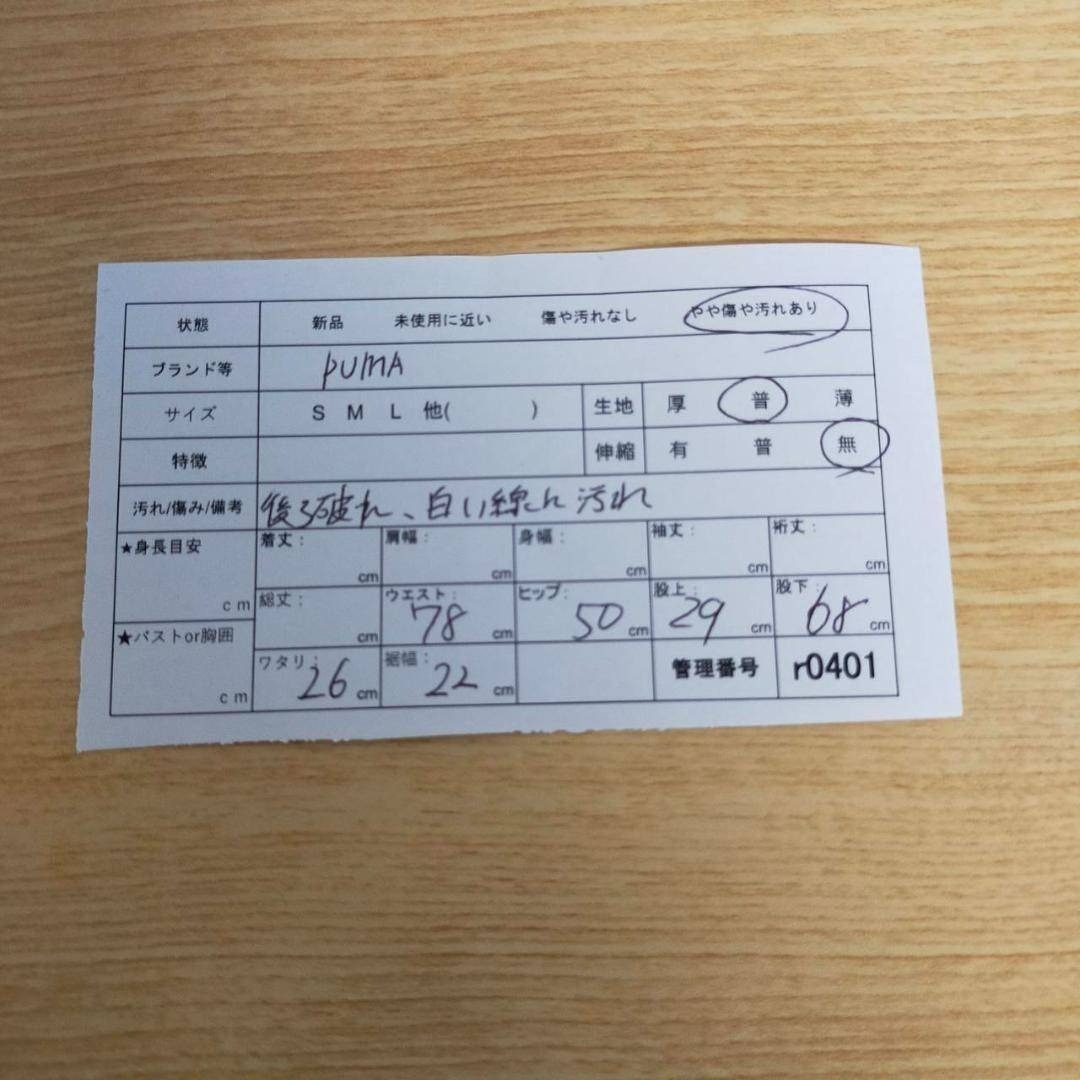 状態 新品 未使用に近い 傷や汚れなし やや傷や汚れあり
ブランド等 PUMA
サイズ S M L 他( ) 生地 厚 普 薄
特徴 伸縮 有 普 無
汚れ/傷み/備考 後ろ破れ、白い線に汚れ
★身長目安 cm 着丈: cm 肩幅: cm 身幅: cm 袖丈: cm 裄丈: cm
総丈: cm ウエスト: 78 cm ヒップ: 50 cm 股上: 29 cm 股下: 68 cm
★バストor胸囲 cm ワタリ: 26 cm 裾幅: 22 cm 管理番号 r0401